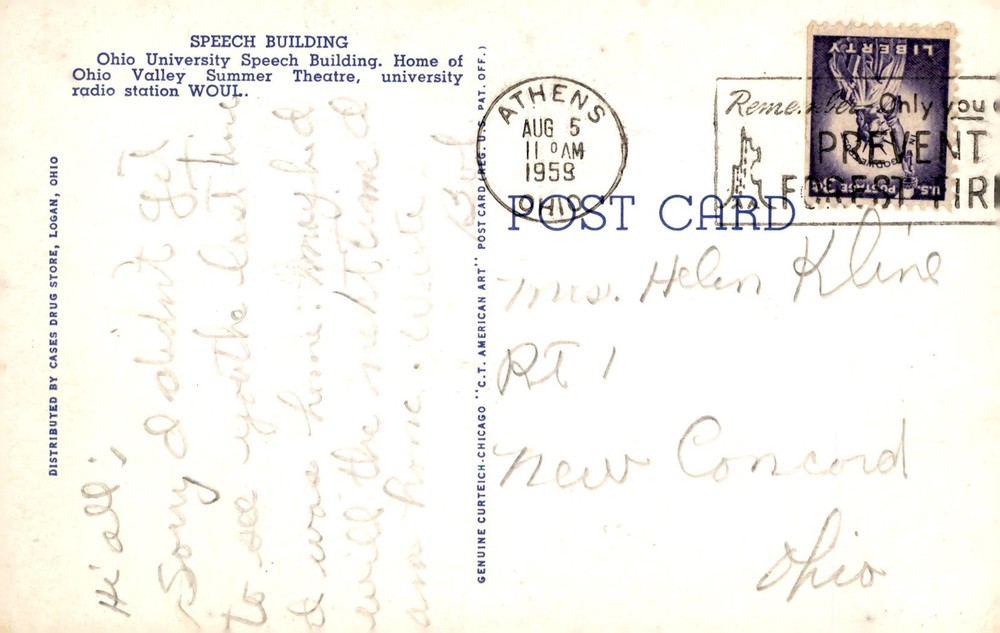 SPEECH BUILDING
Ohio University Speech Building. Home of
Ohio Valley Summer Theatre, university
radio station WOUL.
DISTRIBUTED BY CASES DRUG STORE, LOGAN, OHIO
Hi' all;
Sorry I didn't get
to see you the last time
I was home. maybe
will the next time I
am home. Write
GENUINE CURTEICH-CHICAGO "C.T. AMERICAN ART" POST CARD (REG. U.S. PAT. OFF.)
ATHENS
AUG 5
11 AM
1959
OHIO
Remember Only you
PREVENT
FOREST FIR
LIBERTY
U.S. POSTAGE 3¢
POST CARD
Mrs. Helen Kline
RT 1
New Concord
Ohio